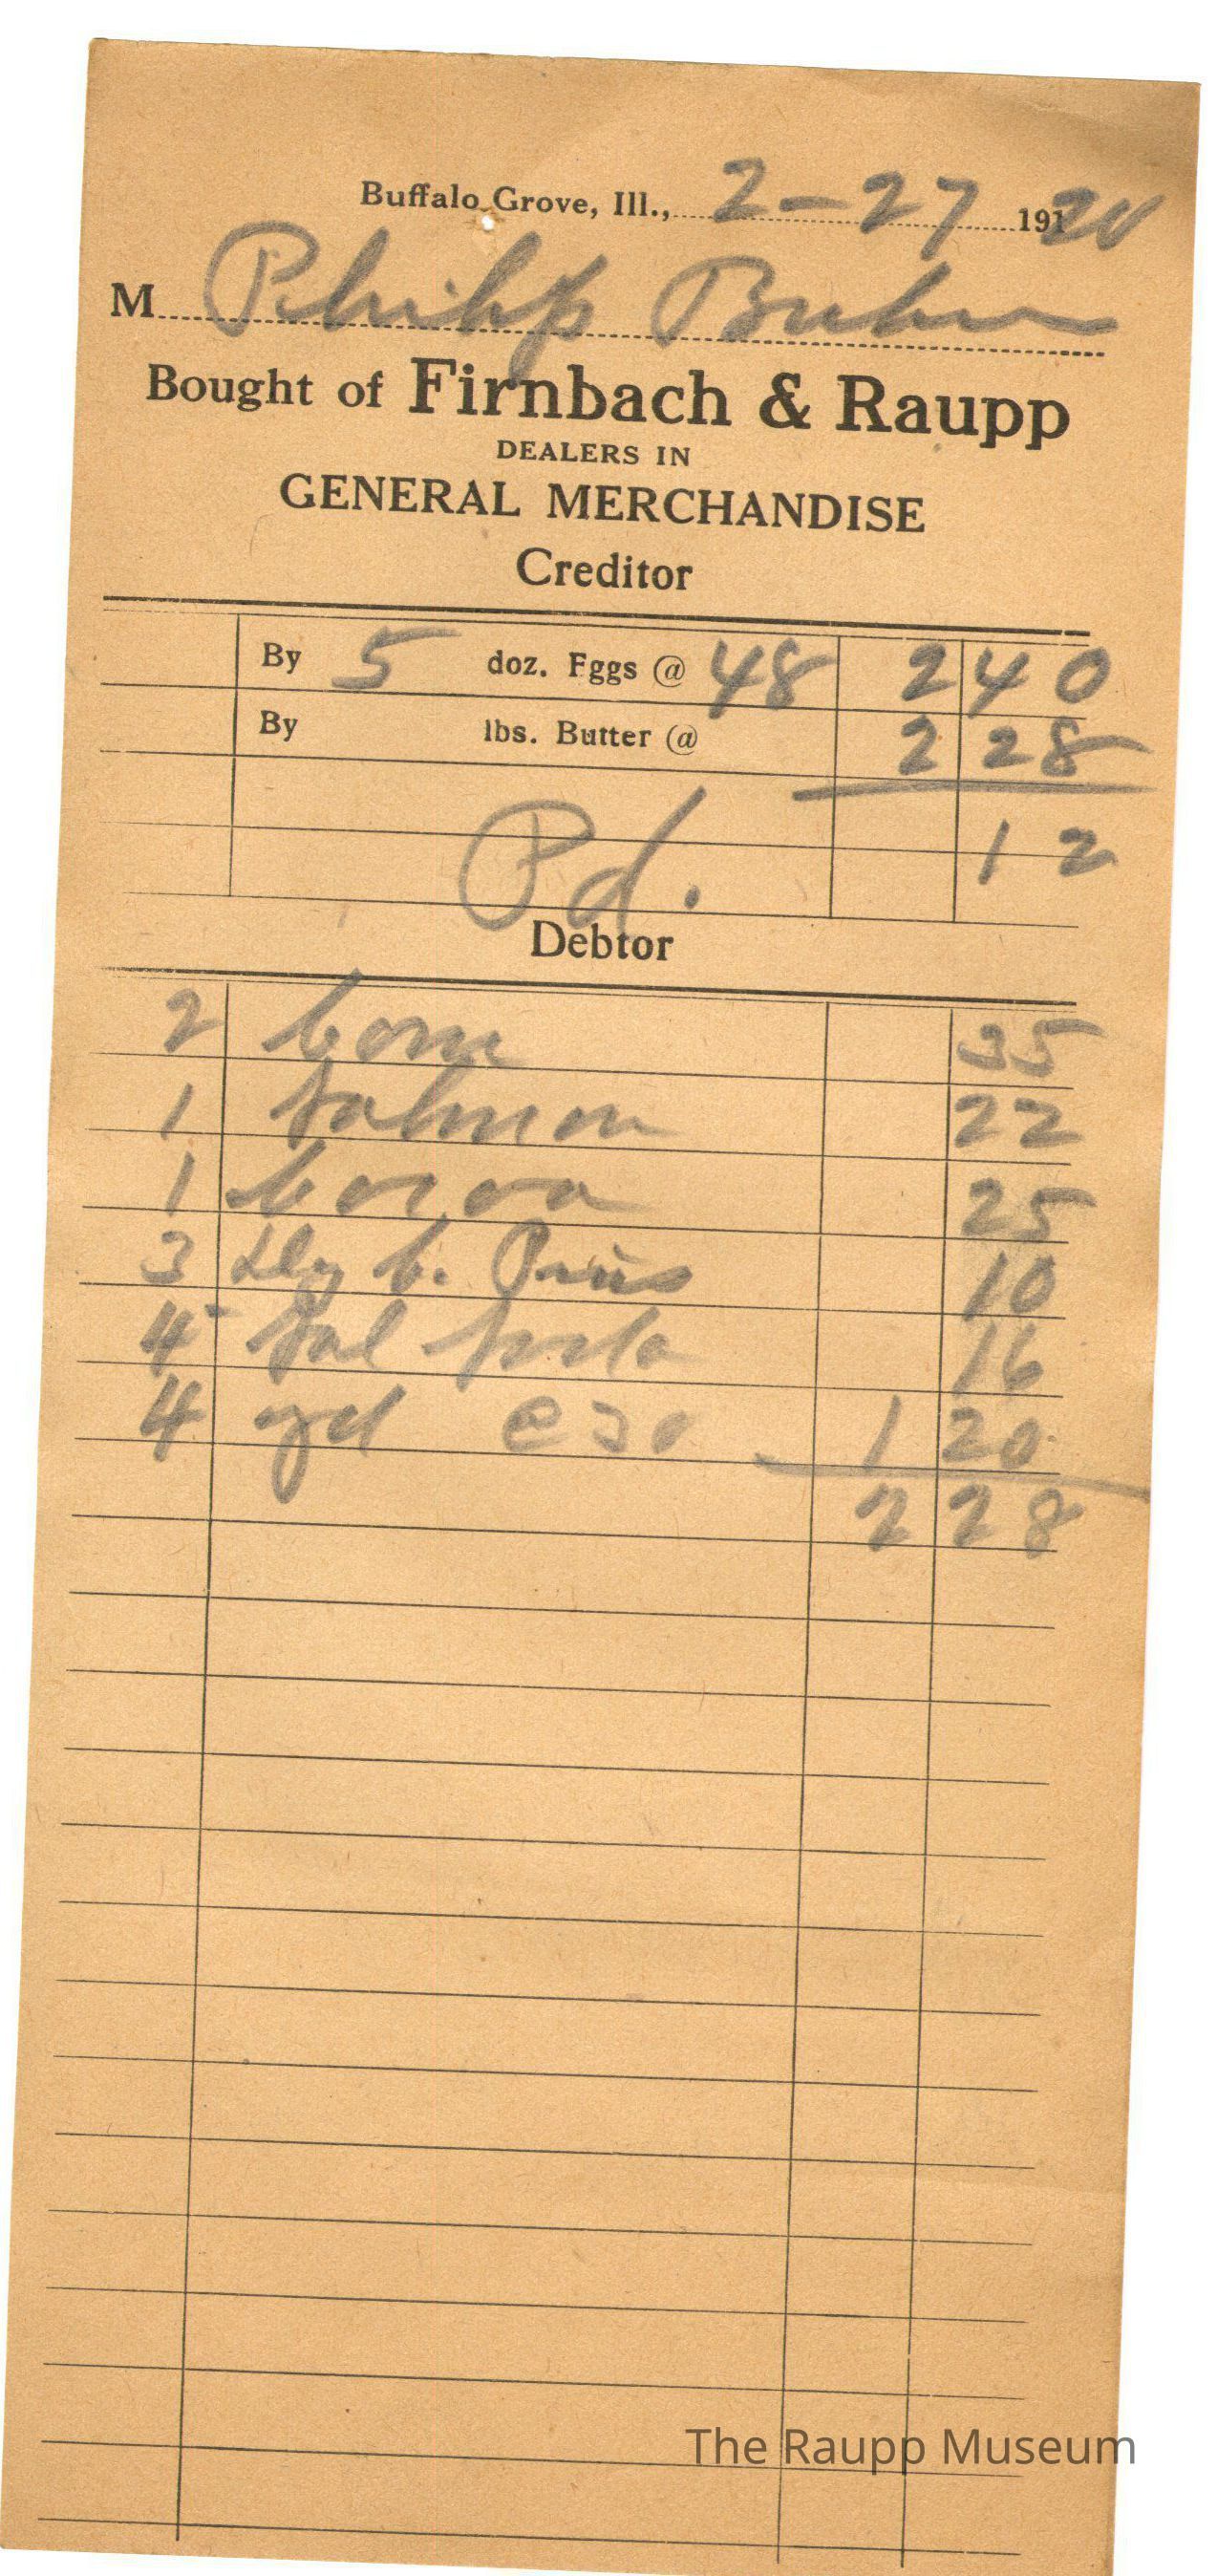 Buffalo Grove, Ill., 2-27 1920
M Philip Buhr
Bought of Firnbach & Raupp
DEALERS IN
GENERAL MERCHANDISE
Creditor
By 5 doz. Eggs @ 48 2 40
By lbs. Butter @ 2 28
12
Pd.
Debtor
2 Corn 35
1 Salmon 22
1 Cocoa 25
3 C. Pins 10
4 Sal Soda 16
4 yd @ 30 1 20
2 28
The Raupp Museum